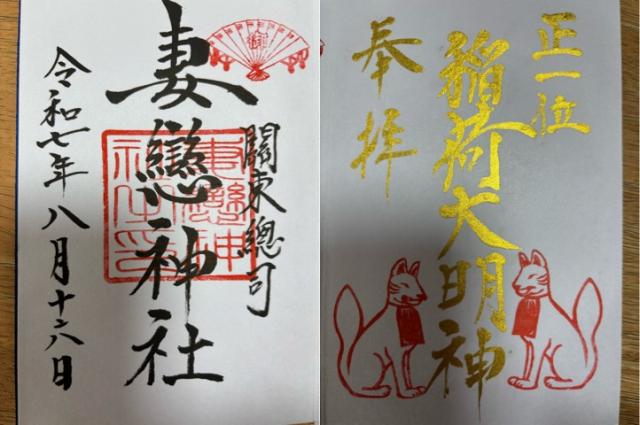 關東總司
妻戀神社
令和七年八月十六日
正一位
稲荷大明神
奉拝